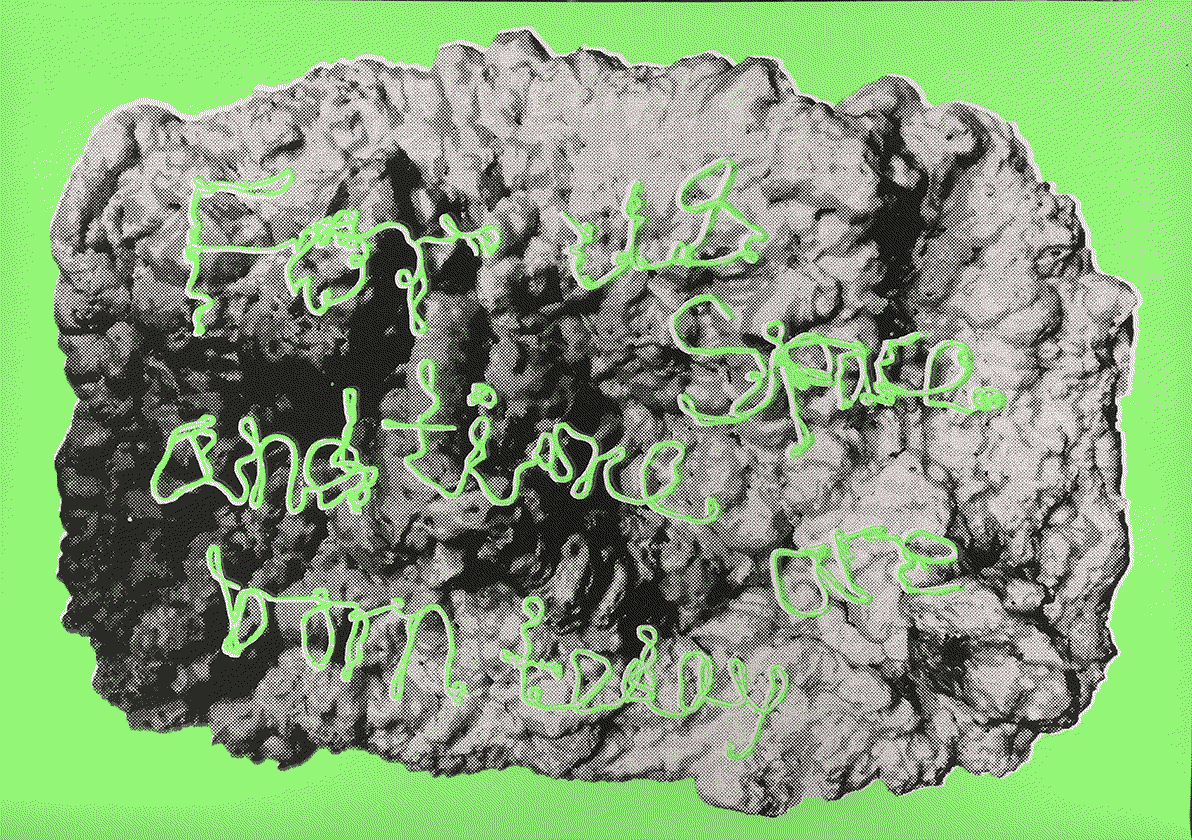 For us
Space
and time
are
born today